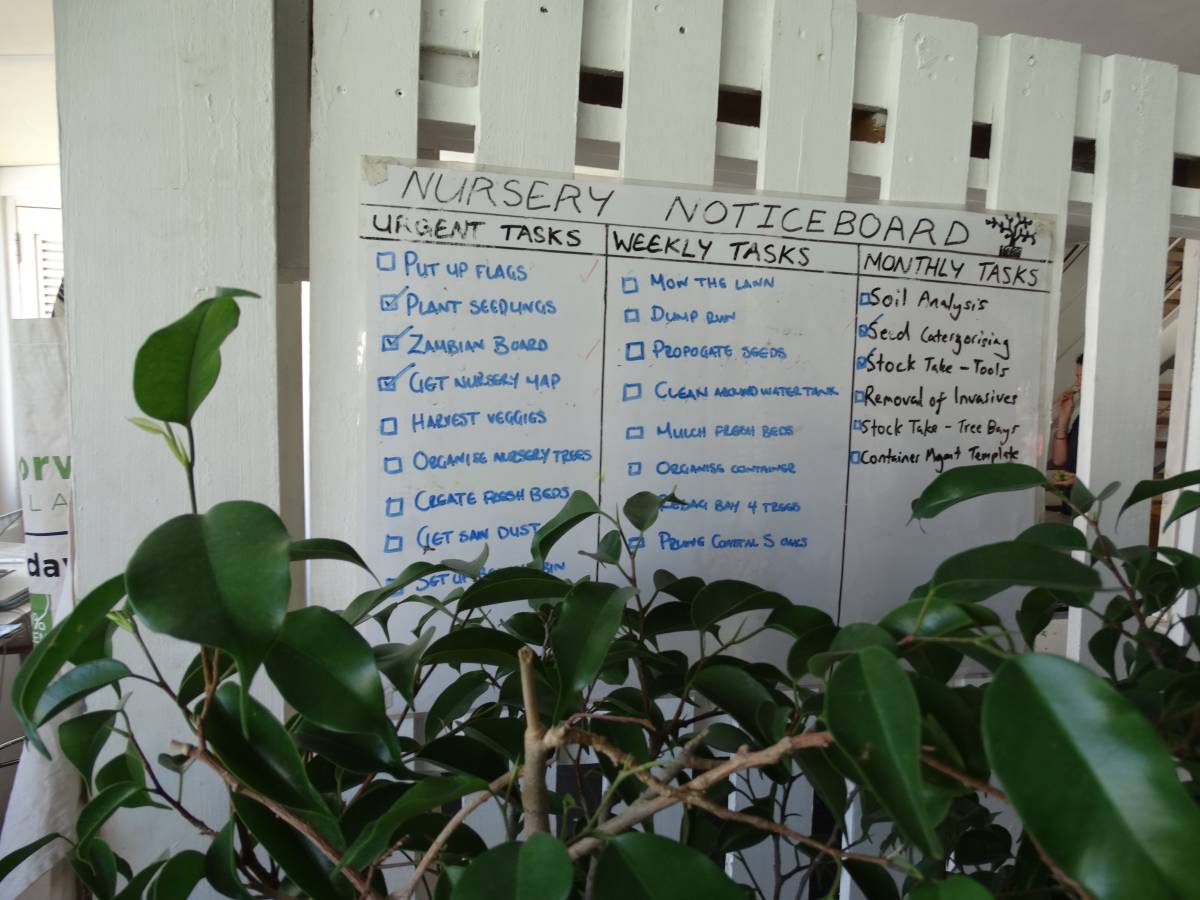 NURSERY NOTICEBOARD
URGENT TASKS
PUT UP FLAGS
PLANT SEEDLINGS
ZAMBIAN BOARD
GET NURSERY MAP
HARVEST VEGGIES
ORGANISE NURSERY TREES
CREATE FRESH BEDS
GET SAW DUST
SET UP
WEEKLY TASKS
MOW THE LAWN
DUMP RUN
PROPOGATE SEEDS
CLEAN AROUND WATER TANK
MULCH FRESH BEDS
ORGANISE CONTAINER
REBAG BAY 4 TREES
PRUNE COASTAL S OAKS
MONTHLY TASKS
Soil Analysis
Seed Catergorising
Stock Take - Tools
Removal of Invasives
Stock Take - Tree Bays
Container Mgmt Template